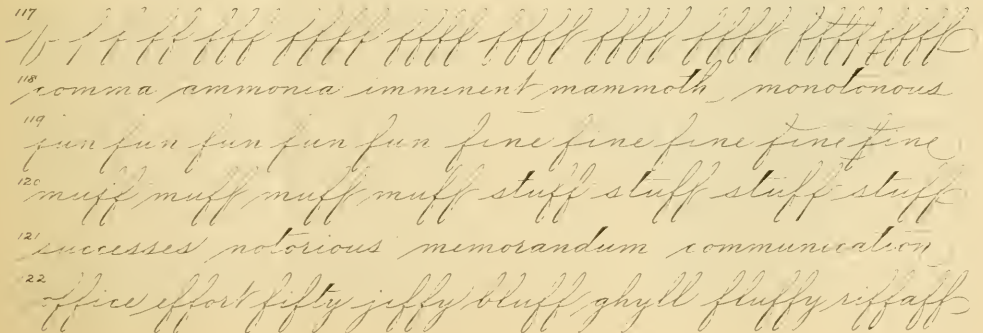 117
118 comma ammonia imminent mammoth monotonous
119 fun fun fun fun fun fine fine fine fine fine
120 muff muff muff muff stuff stuff stuff stuff
121 successes notorious memorandum communication
22 office effort fifty jeffy bluff ghyll fluffy riffaff